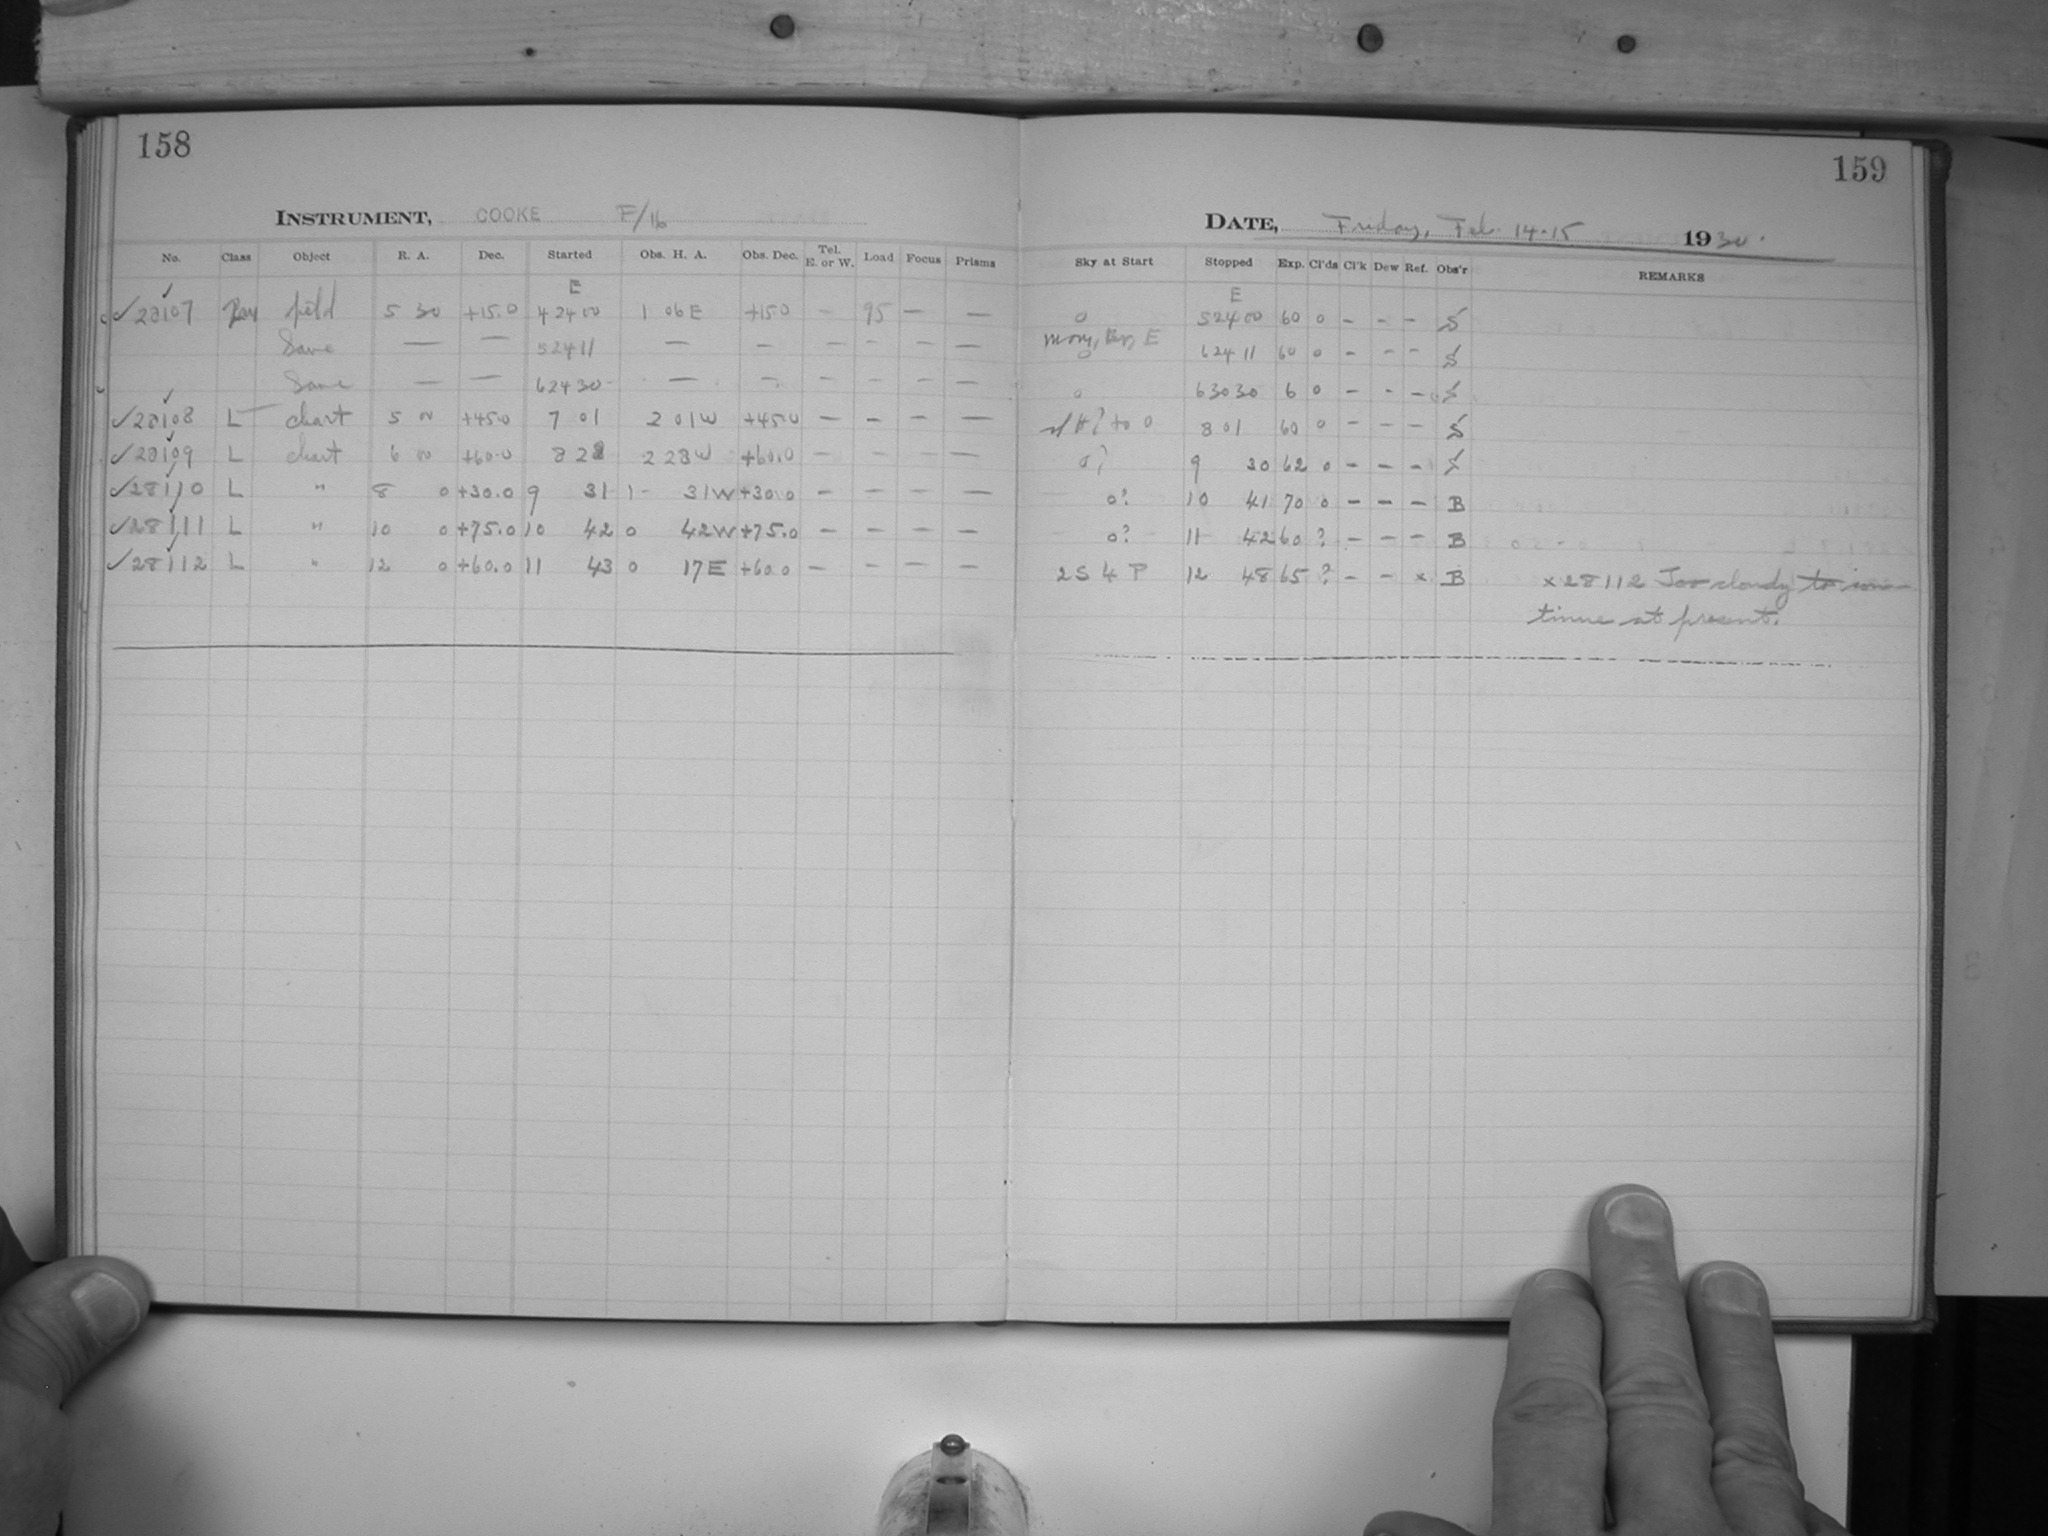 158
INSTRUMENT, COOKE F/16
No. Class Object R. A. Dec. Started Obs. H. A. Obs. Dec. Tel. E. or W. Load Focus Prisms
E
✓28107 field 5 30 +15.0 4 24 00 1 06 E +15.0 — 95 — —
Same — — 5 24 11 — — — — — —
Same — — 6 24 30 — — — — — —
✓28108 L chart 5 00 +45.0 7 01 2 01 W +45.0 — — — —
✓28109 L chart 6 00 +60.0 8 28 2 28 W +60.0 — — — —
✓28110 L " 8 0 +30.0 9 31 1 31 W +30.0 — — — —
✓28111 L " 10 0 +75.0 10 42 0 42 W +75.0 — — — —
✓28112 L " 12 0 +60.0 11 43 0 17 E +60.0 — — — —
159
DATE, Friday, Feb. 14-15 1930.
Sky at Start Stopped Exp. Cl'ds Cl'k Dew Ref. Obs'r REMARKS
E
0 5 24 00 60 0 - - - S
E 6 24 11 60 0 - - - S
0 6 30 30 6 0 - - - S
to 0 8 01 60 0 - - - S
0? 9 30 62 0 - - - S
0? 10 41 70 0 - - - B
0? 11 42 60 ? - - - B
2 S 4 P 12 48 65 ? - - x B x 28112 Too cloudy to con-
tinue at present.